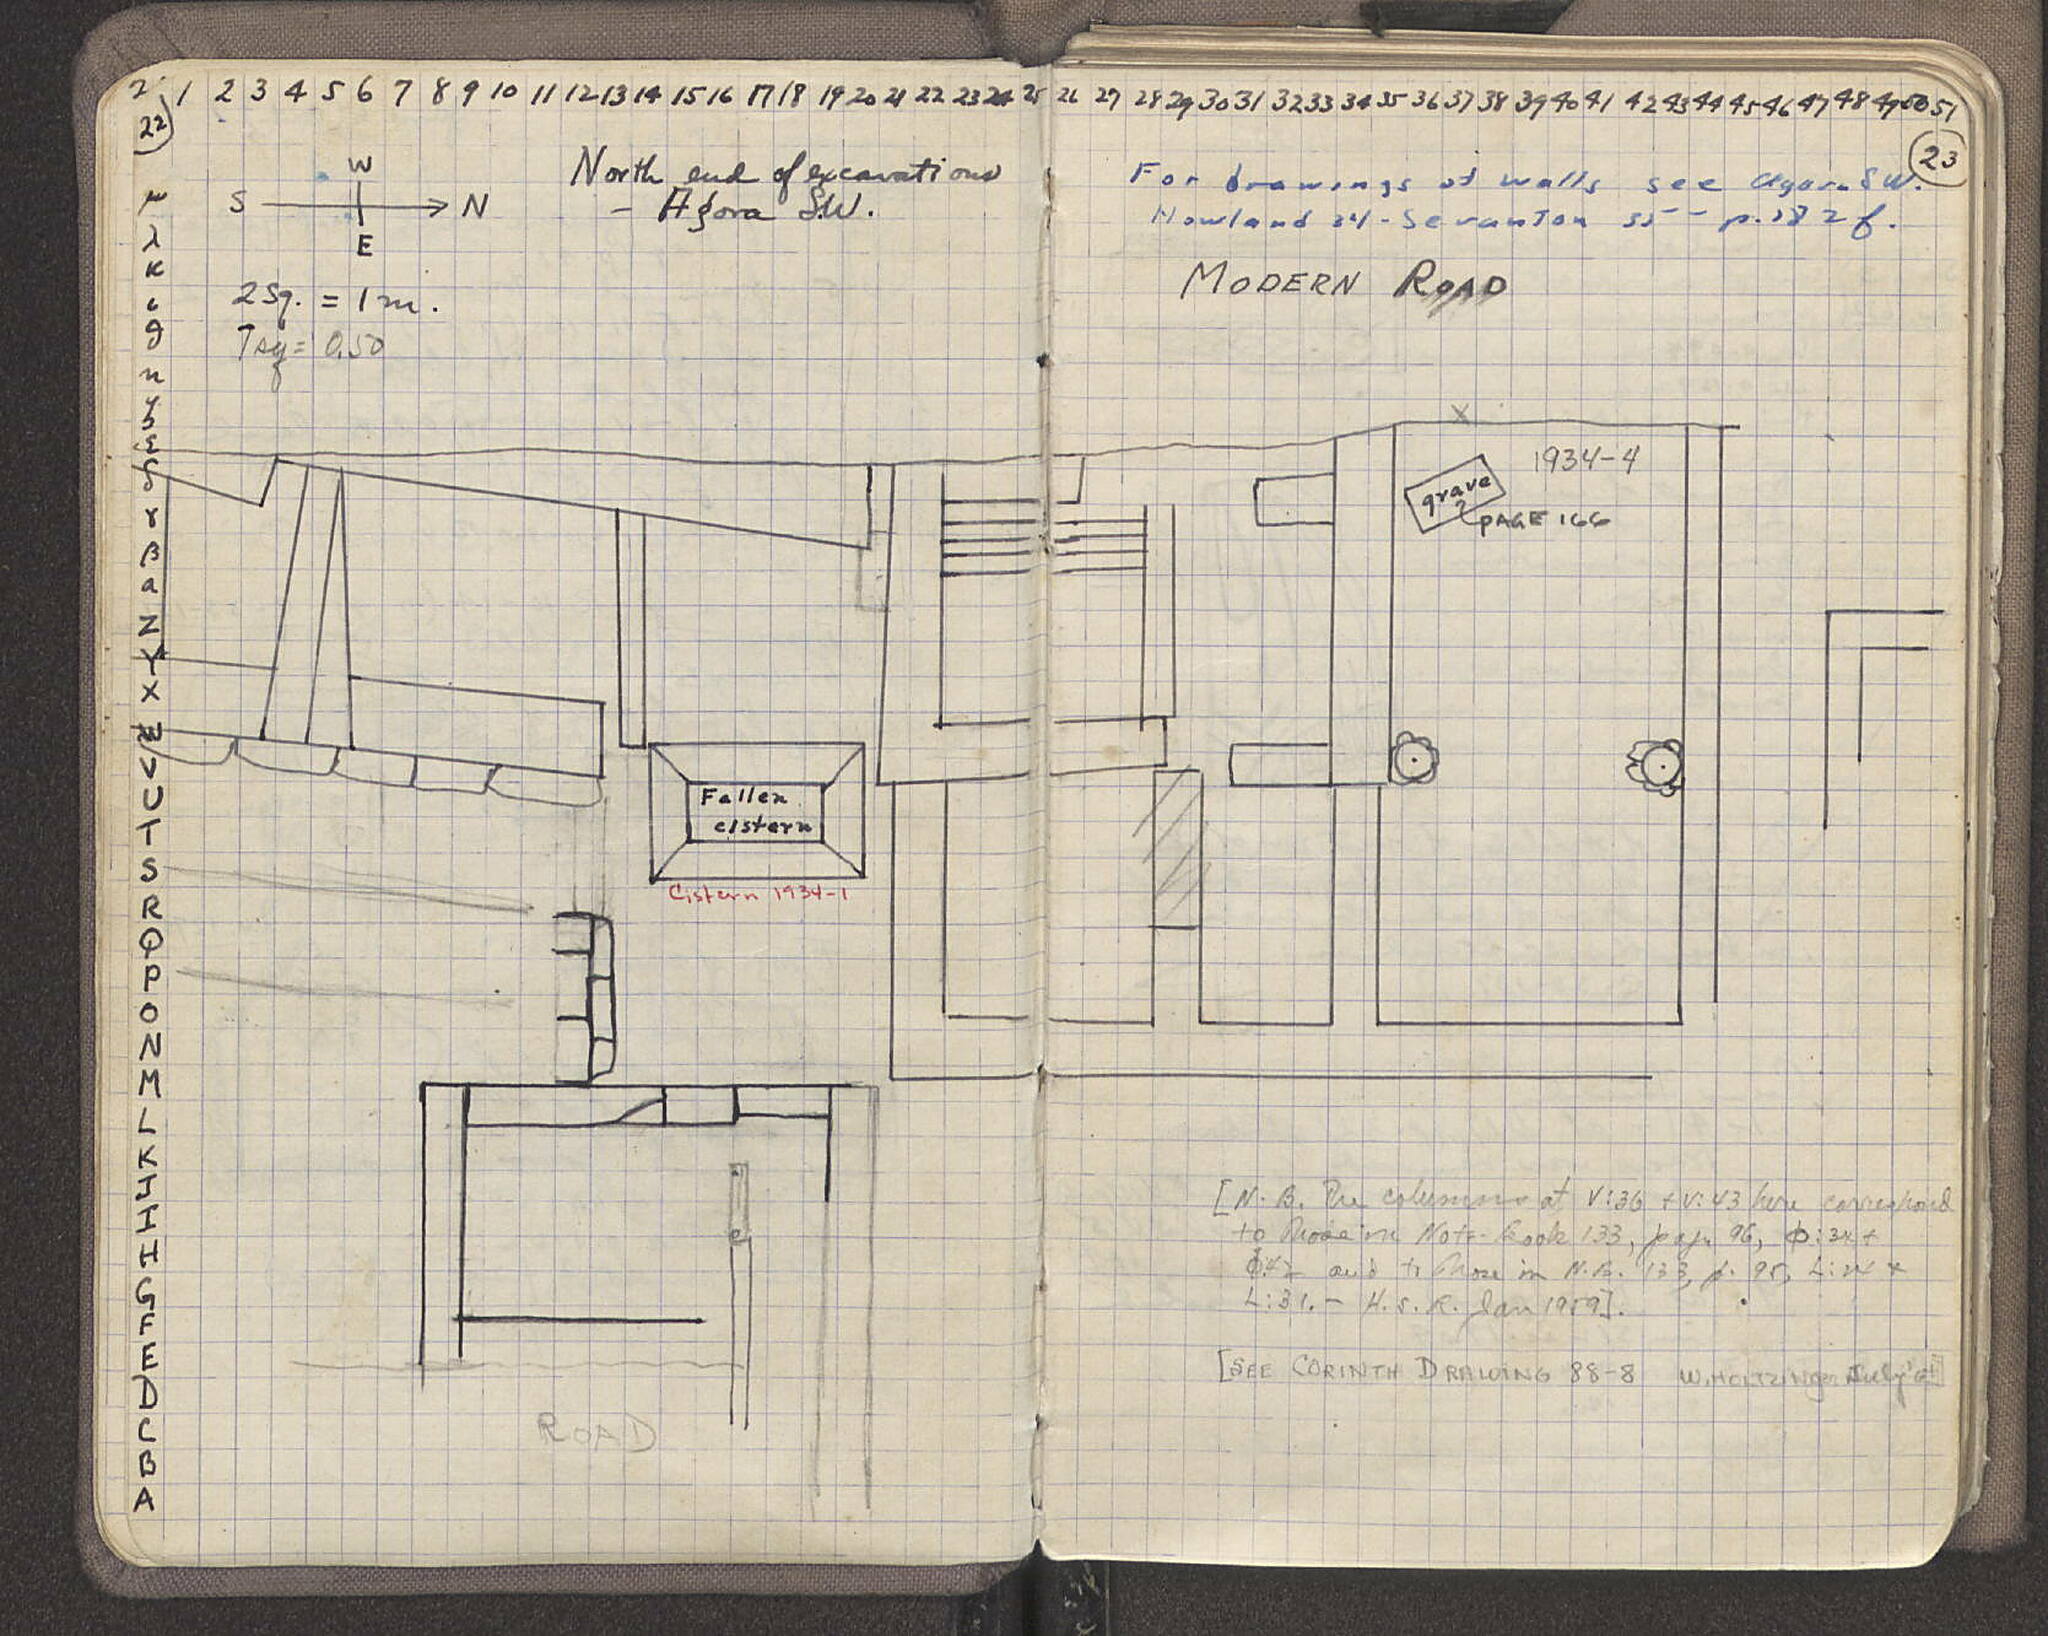 1 2 3 4 5 6 7 8 9 10 11 12 13 14 15 16 17 18 19 20 21 22 23 24 25 26 27 28 29 30 31 32 33 34 35 36 37 38 39 40 41 42 43 44 45 46 47 48 49 50 51
22
23
W
S N
E
North end of excavations
- Agora S.W.
2 sq. = 1 m.
1 sq = 0.50
For drawings of walls see Agora S.W.
Howland 34 - Scranton 35 - p. 182 f.
MODERN ROAD
μ
λ
κ
ι
θ
η
ζ
ε
δ
γ
β
α
Z
Y
X
W
V
U
T
S
R
Q
P
O
N
M
L
K
J
I
H
G
F
E
D
C
B
A
x
1934-4
grave
PAGE 166
Fallen
cistern
Cistern 1934-1
ROAD
[N.B. The columns at V:36 + V:43 here correspond
to those in Note-Book 133, page 96, Φ:34 +
Φ:42 and to those in N.B. 133, p. 95, L:24 +
L:31. - H.S.R. Jan 1959].
[SEE CORINTH DRAWING 88-8 W. HOLTZINGER July